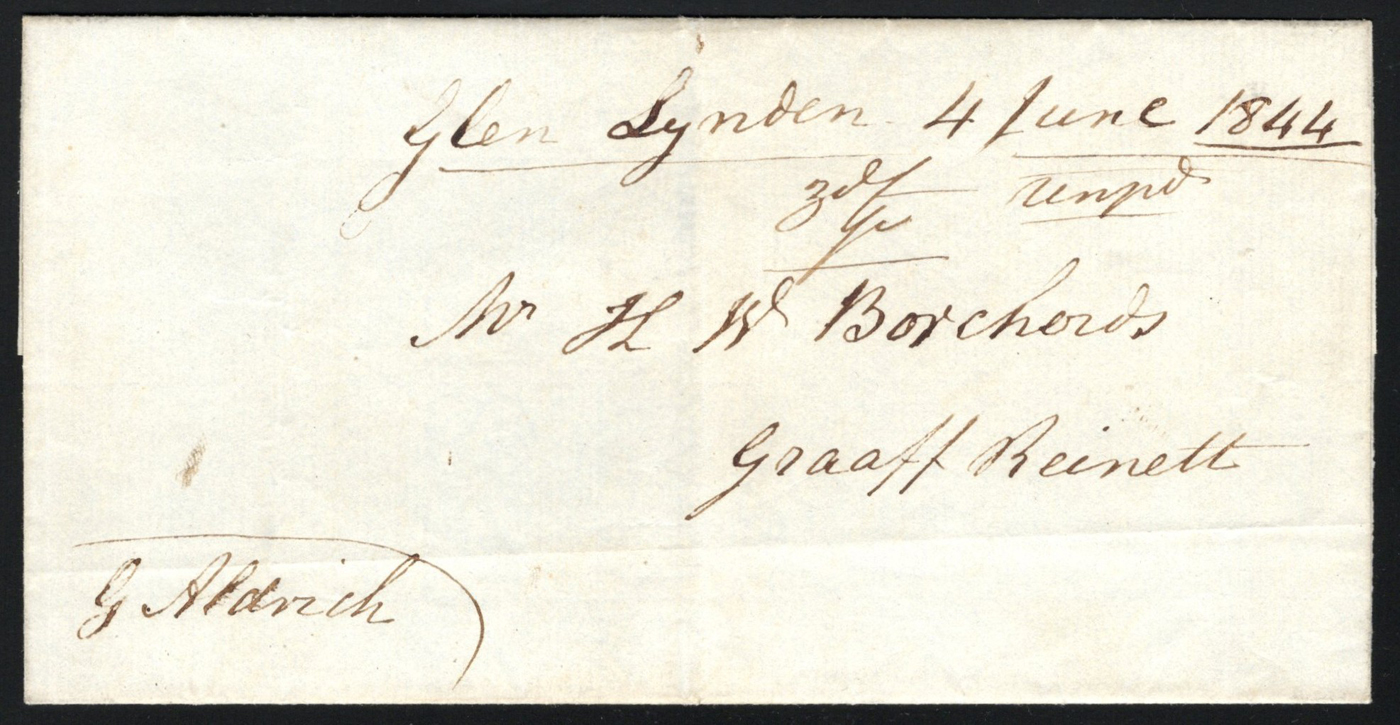 Glen Lynden 4 June 1844
unpd
Mr H Wd Borchords
Graaff Reinett
G Aldrich